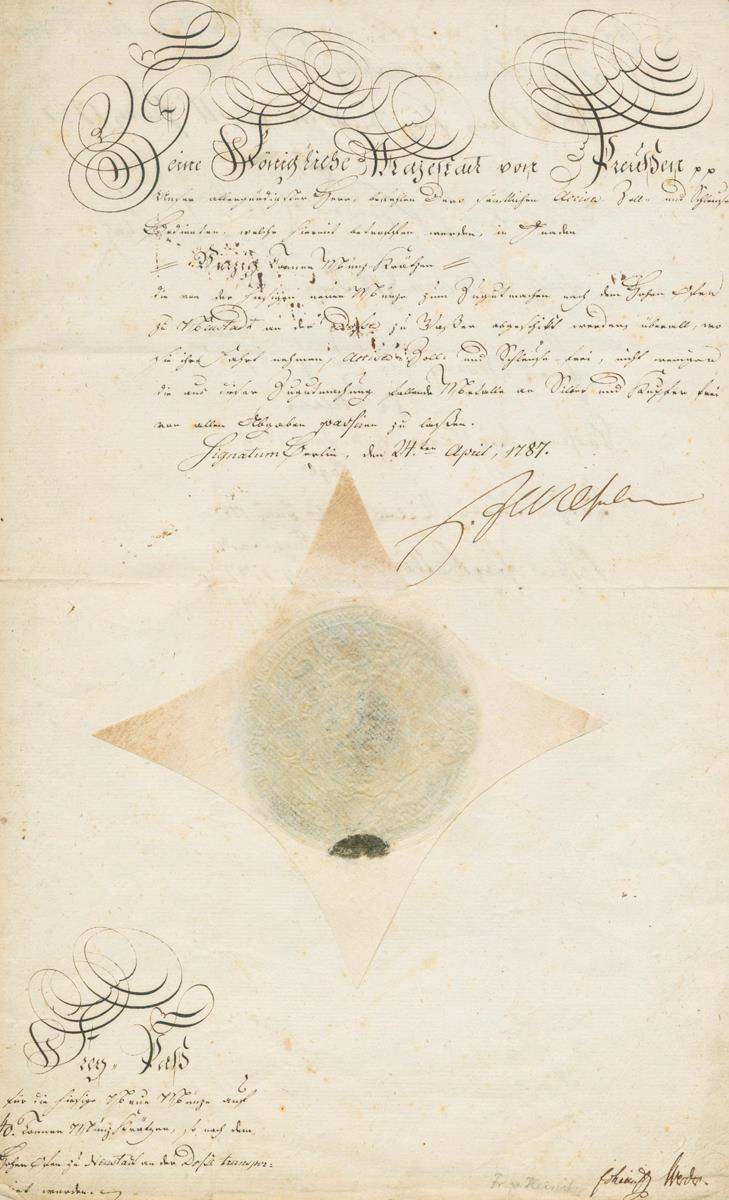 Seine Königliche Majestaet von Preußen pp
Unser allergnädigster Herr, befehlen Dero sämtlichen Accise- Zoll- und Schleuse
Bedienten, welche hiermit betroffen werden, in Gnaden
// Vierzig Tonnen Münz-Krätzen //
die von der hiesigen neuen Münze zum Zugutmachen nach dem Hohen Ofen
zu Neustadt an der Doße zu Waßer abgeschikt werden, überall, wo
sie ihre Fahrt nehmen, Accise- Zoll- und Schleuse-frei, nicht weniger
die aus dieser Zugutmachung fallende Metalle an Silber und Kupfer frei
von allen Abgaben passiren zu laßen.
Signatum Berlin, den 24.ten April, 1787.
Frey-Paß
für die hiesige Neue Münze auf
40. Tonnen Münz-Krätzen, so nach dem
Hohen Ofen zu Neustadt an der Doße transpor-
tirt werden.